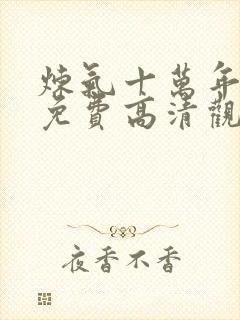 煉氣十萬年
免費高清觀
夜香不香